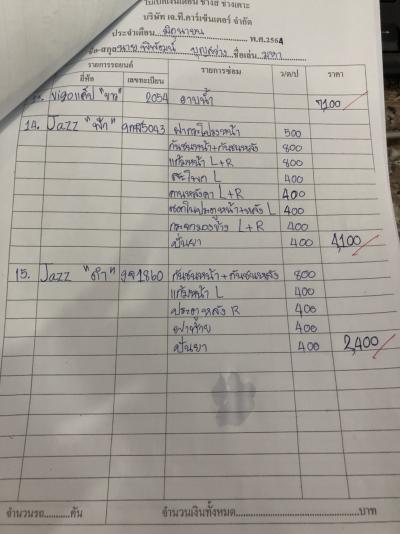 ใบเบิกเงินเดือน ช่างสี ช่างเคาะ
บริษัท เจ.ที.คาร์เซ็นเตอร์ จำกัด
ประจำเดือน...มิถุนายน......พ.ศ.2564
ชื่อเล่น...มหา
รายการรถยนต์ รายการซ่อม ว/ด/ป ราคา
ยี่ห้อ เลขทะเบียน
Vigoแค๊ป "ขาว" 2054 อาบน้ำ 7,100
14. Jazz "ฟ้า" 5043 ฝากระโปรงหน้า 500
กันชนหน้า+กันชนหลัง 800
แก้มหน้า L+R 800
สะโพก L 400
L+R 400
L 400
กระจกมองข้าง L+R 400
ปั่นยา 400 4,100
15. Jazz "ดำ" 1860 กันชนหน้า+กันชนหลัง 800
แก้มหน้า L 400
ประตูหลัง R 400
ฝาท้าย 400
ปั่นยา 400 2,400
จำนวนรถ..........คัน จำนวนเงินทั้งหมด..............................บาท